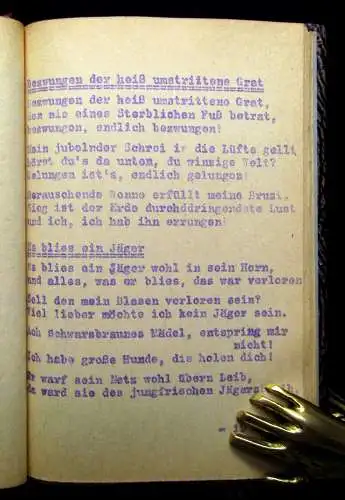 Bezwungen der heiß umstrittene Grat
Bezwungen der heiß umstrittene Grat,
Den nie eines Sterblichen Fuß betrat,
bezwungen, endlich bezwungen!
Mein jubelnder Schrei in die Lüfte gellt
höret du's da unten, du winzige Welt?
Gelungen ist's, endlich gelungen!
Berauschende Wonne erfüllt meine Brust.
Sieg ist der Erde durchddringendste Lust
und ich, ich hab ihn errungen!
Es blies ein Jäger
Es blies ein Jäger wohl in sein Horn,
und alles, was er blies, das war verloren
Soll den mein Blasen verloren sein?
Viel lieber möchte ich kein Jäger sein.
Ach Schwarzbraunes Mädel, entspring mir
nicht!
Ich habe große Hunde, die holen dich!
Er warf sein Netz wohl übern Leib,
da ward sie des jungfrischen